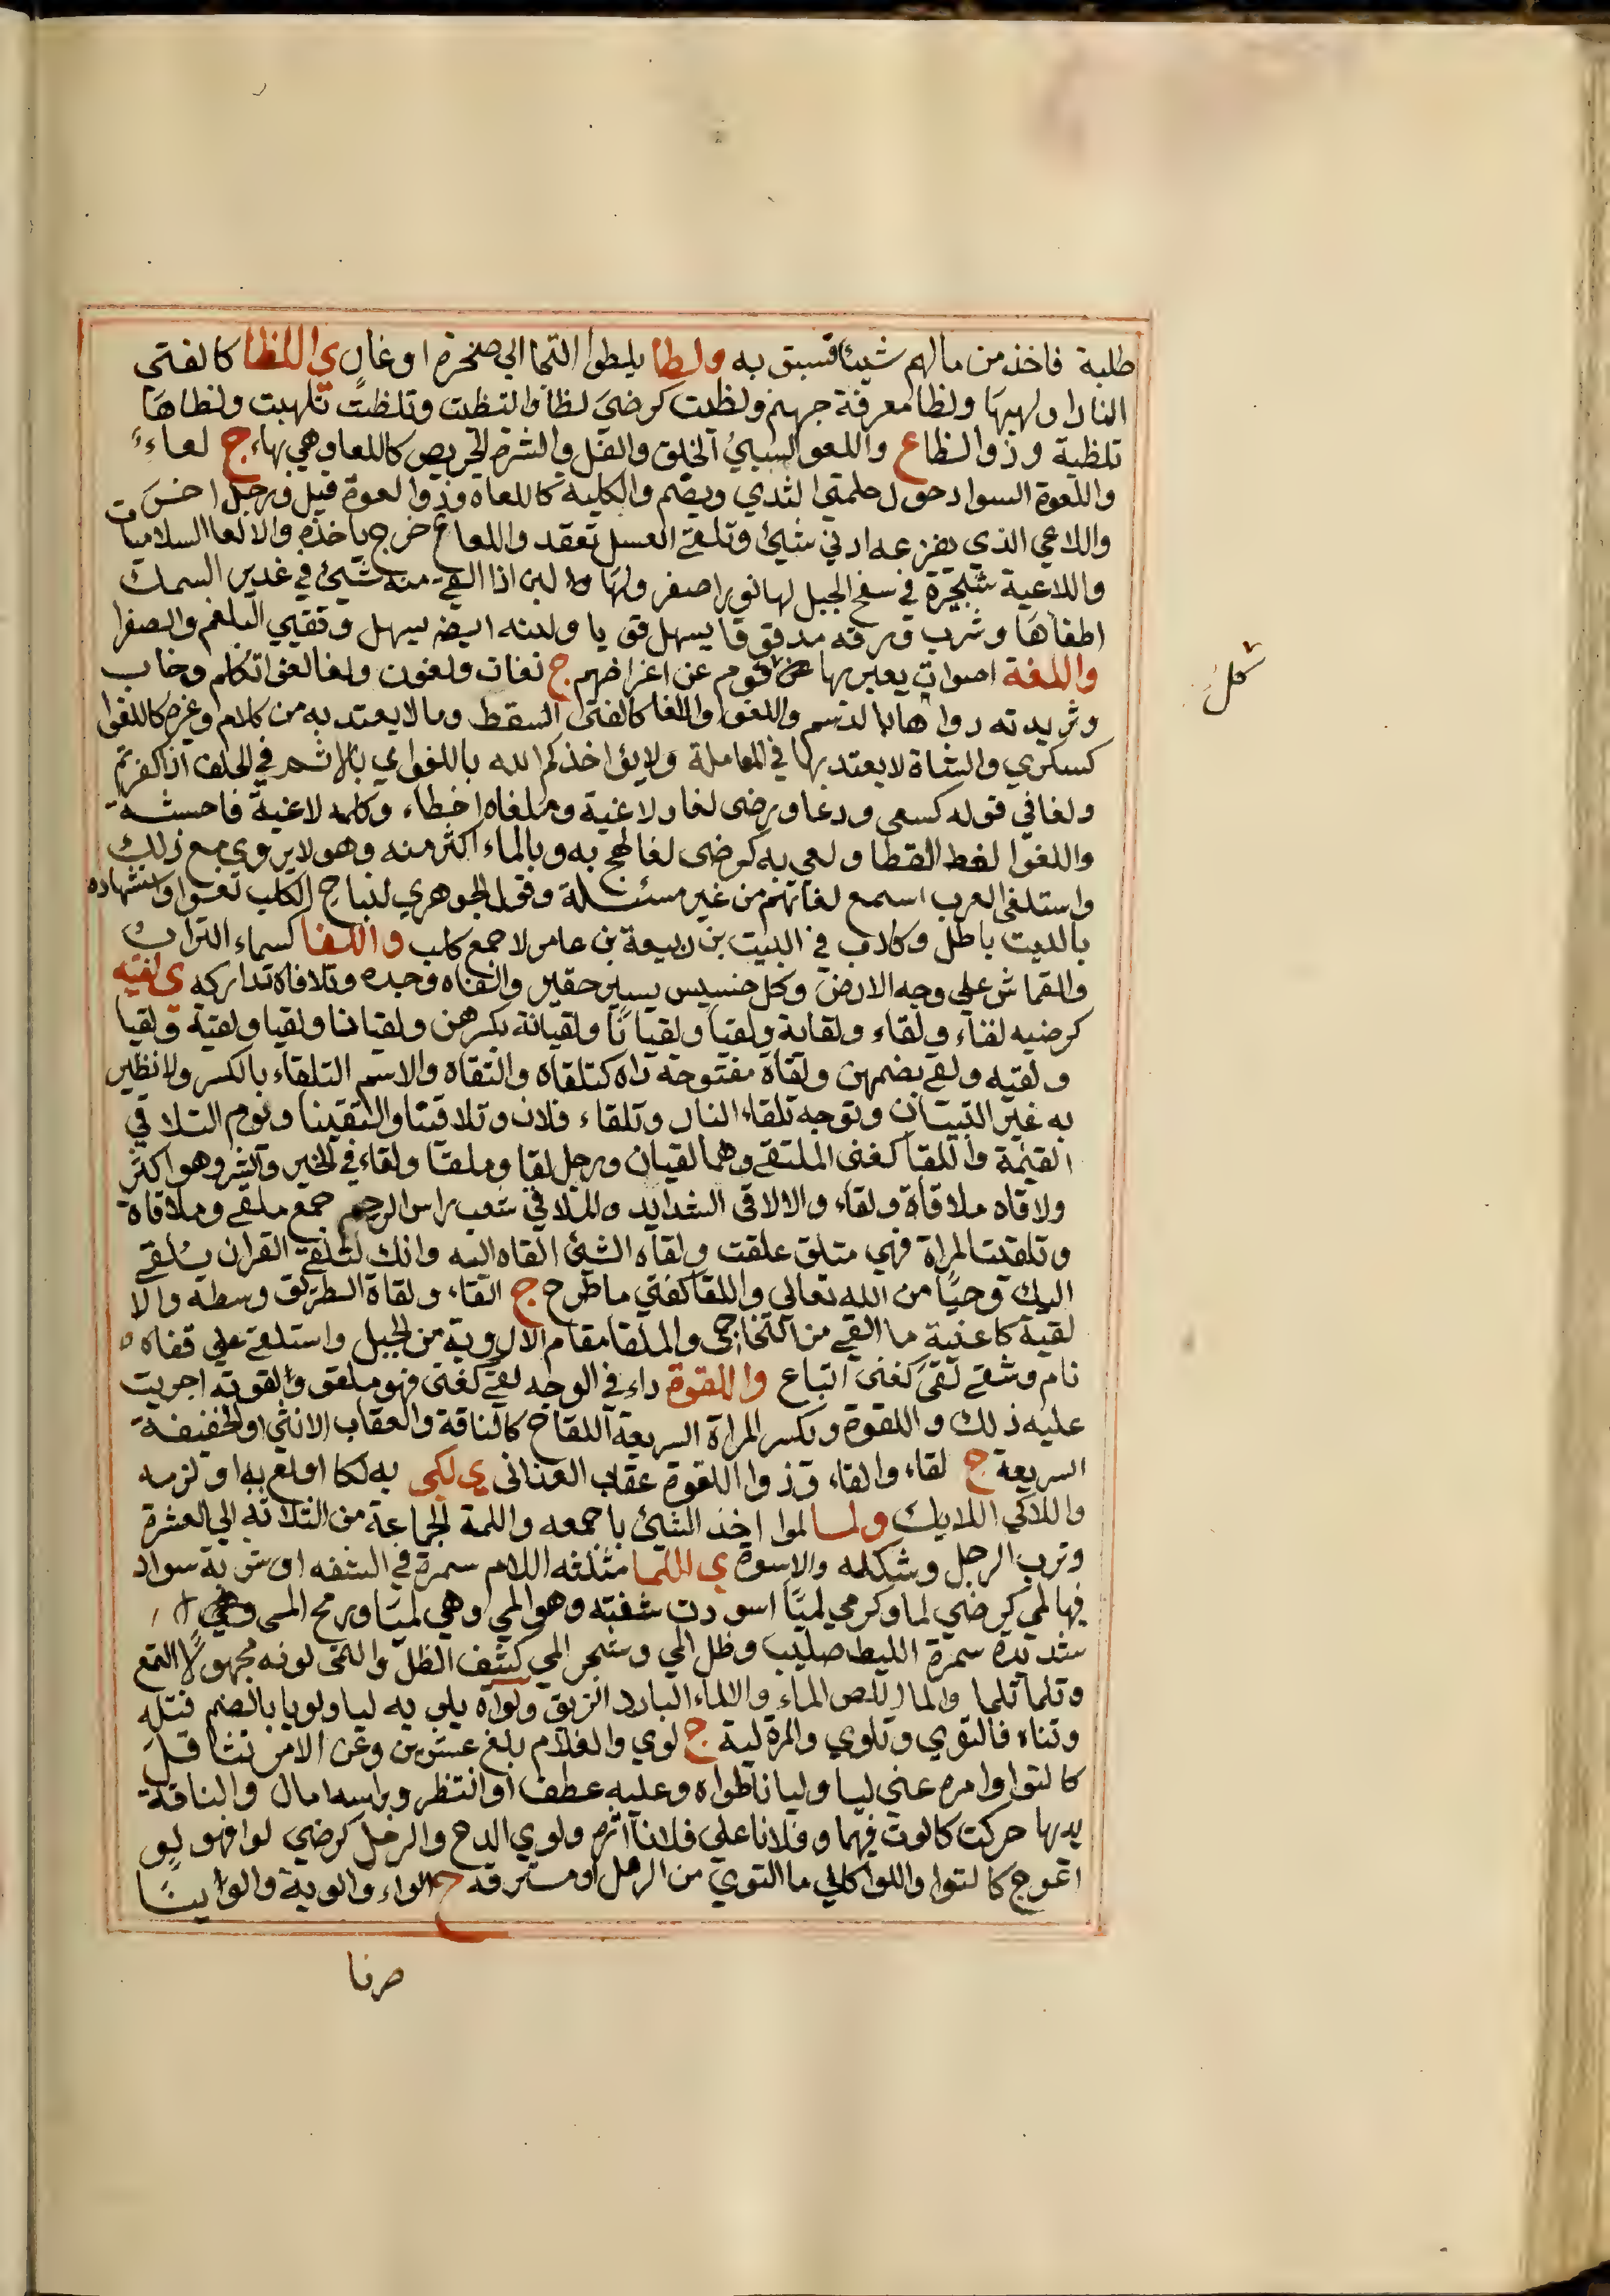 طلبة فاخذ من مالهم شيئا فسبق به ولطا يلطوا التجا الى صخرة او غار ي اللظا كالفتى
النار او لهيبها ولظا معرفة جهنم ولظيت كرضي لظا والتظت وتلظت تلهبت ولظاها
تلظية وذوالظاع واللعو السيئ الخلق والفسل والشره الحريص كاللعا وهي بهاء ج لعاء
واللعوة السواد حول حلمتي الثدي ويضم والكلبة كاللعاه وذوالعوة قيل ورجل اخر
واللاعي الذي يفزعه ادني شيئ وتلعى العسل تعقد واللعاع خرج ياخذه والالعا السلاميات
واللاعية شجيرة في سفح الجبل لها نور اصفر ولها لبن اذا القي منه شيئ في غدير السمك
اطفاها وشرب ورقه مدقوقا يسهل قويا ولبنه ايضا يسهل وتقيي البلغم والصفرا
واللغة اصوات يعبر بها قوم عن اغراضهم ج لغات ولغون ولغا لغوا تكلم وخاب
وثريدته رواها بالدسم واللغو واللغا كالفتى السقط وما لا يعتد به من كلام وغيره كاللغوا
كسكري والشاة لا يعتد بها في المعاملة ولا يؤاخذكم الله باللغو اي بالاثم في الحلف اذا كفرتم
ولغا في قوله كسعى ودعا ورضى لغا ولاغية وملغاه اخطاء وكلمه لاغية فاحشة
واللغوا لغط القطا ولغي به كرضى لغا لهج به وبالماء اكثر منه وهو لا يروي مع ذلك
واستلغى العرب استمع لغاتهم من غير مسئلة وقول الجوهري لنباح الكلب لغوا واستشهاده
بالبيت باطل وكلاب في البيت بن ربيعة بن عامر لا جمع كلب واللفا كسماء التراب
والقماش على وجه الارض وكل خسيس يسير حقير والفاه وجده وتلافاه تداركه ي لقيه
كرضيه لقاء ولقاء ولقاية ولقيا ولقيانا ولقيانة بكسرهن ولقيانا ولقيا ولقية ولقيا
ولقيه ولقى بضمهن ولقاة مفتوحة راه كتلقاه والتقاه والاسم التلقاء بالكسر ولا نظير
به غير التبيان وتوجه تلقاء النار وتلقاء فلان وتلاقينا والتقينا ويوم التلاقي
القيمة واللقا كغنى الملتقى وهما لقيان ورجل لقا وملقا ولقاء في الخير والشر وهو اكثر
ولاقاه ملاقاة ولقاء والالاقى الشدايد والملاقي شعب راس الرحم جمع ملقى وملاقاة
وتلقت المراة فهي متلق علقت ولقاه الشيئ القاه اليه وانك لتلقى القران يلقى
اليك وحيا من الله تعالى واللقا كفتى ما طرح ج القاء ولقاة الطريق وسطه والا
لقية كاغنية ما القي من التحاجى والملقا مقام الاروية من الجبل واستلقى على قفاه
نام وشقى لقي كغنى اتباع واللقوة داء في الوجه لقي كغنى فهو ملقو والقوته اجريت
عليه ذلك واللقوة وبكسر المراة السريعة اللقاح كالناقة والعقاب الانثى او الخفيفة
السريعة ج لقاء والقاء وذوا اللقوة عقاب الغدانى ي لكى به لكا اولع به او لزمه
واللاكي اللايك ولما لموا اخذ الشيئ باجمعه واللمة الجماعة من الثلاثه الى العشرة
وترب الرجل وشكله والاسوة ي اللما مثلثه اللام سمرة في الشفه او شربة سواد
فيها لمي كرضي لما وكرمي لميا اسودت شفته وهو المي وهي لميا ورمح المى
شديدة سمرة الليط صليب وظل المي وشجر المي كثيف الظل والتمى لونه مجهولا التمع
وتلما تلما والما اللص الماء والالماء البارد الريق ولواه يلويه ليا ولويا بالضم فتله
وثناه فالتوي وتلوي والمرة لية ج لوي والغلام بلغ عشرين وعن الامر تثاقل
كالتوا وامره عني ليا وليانا طواه وعليه عطف او انتظر وبراسه امال والناقة
بذنبها حركت كالوت فيهما وفلانا على فلانا اثره ولوي القدح والرمل كرضي لوا فهو لو
اعوج كالتوا واللوا كالى ما التوي من الرمل او مسترقه ج الواء والوية والواينا
صرنا
كل